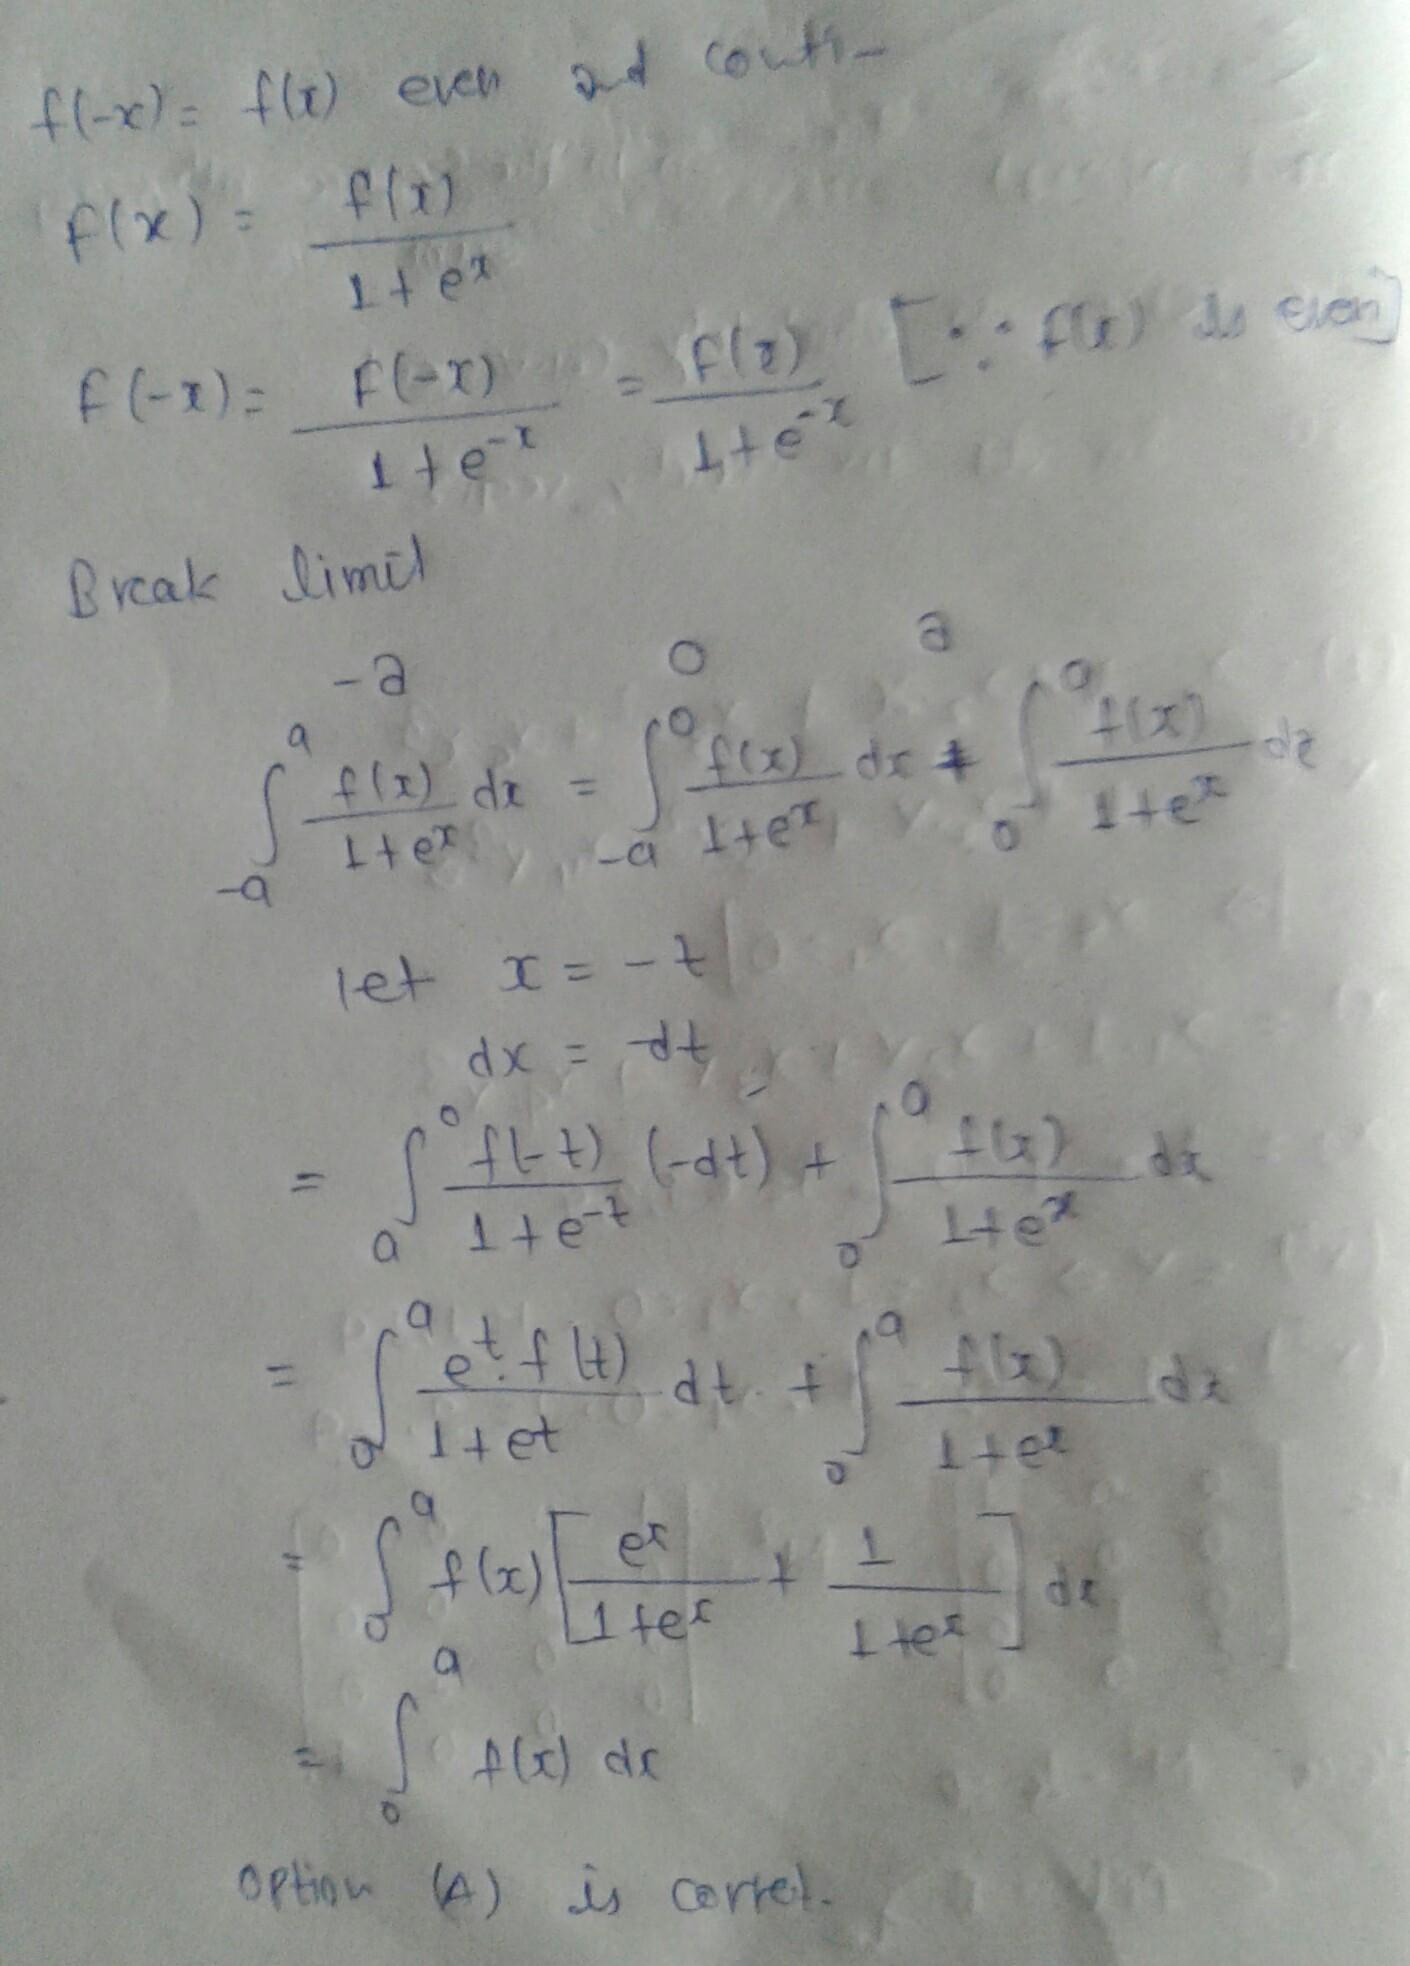 f(-x) = f(x) even and conti-
f(x) = f(x) / 1+e^x
f(-x) = f(-x) / 1+e^-x = f(x) / 1+e^-x [∵ f(x) is even]
Break limit
-a 0 a
∫_-a^a f(x)/1+e^x dx = ∫_-a^0 f(x)/1+e^x dx + ∫_0^a f(x)/1+e^x dx
let x = -t
dx = -dt
= ∫_a^0 f(-t)/1+e^-t (-dt) + ∫_0^a f(x)/1+e^x dx
= ∫_0^a e^t. f(t)/1+et dt. + ∫_0^a f(x)/1+e^x dx
= ∫_0^a f(x) [e^x/1+e^x + 1/1+e^x] dx
= ∫_0^a f(x) dx
option (A) is correct.